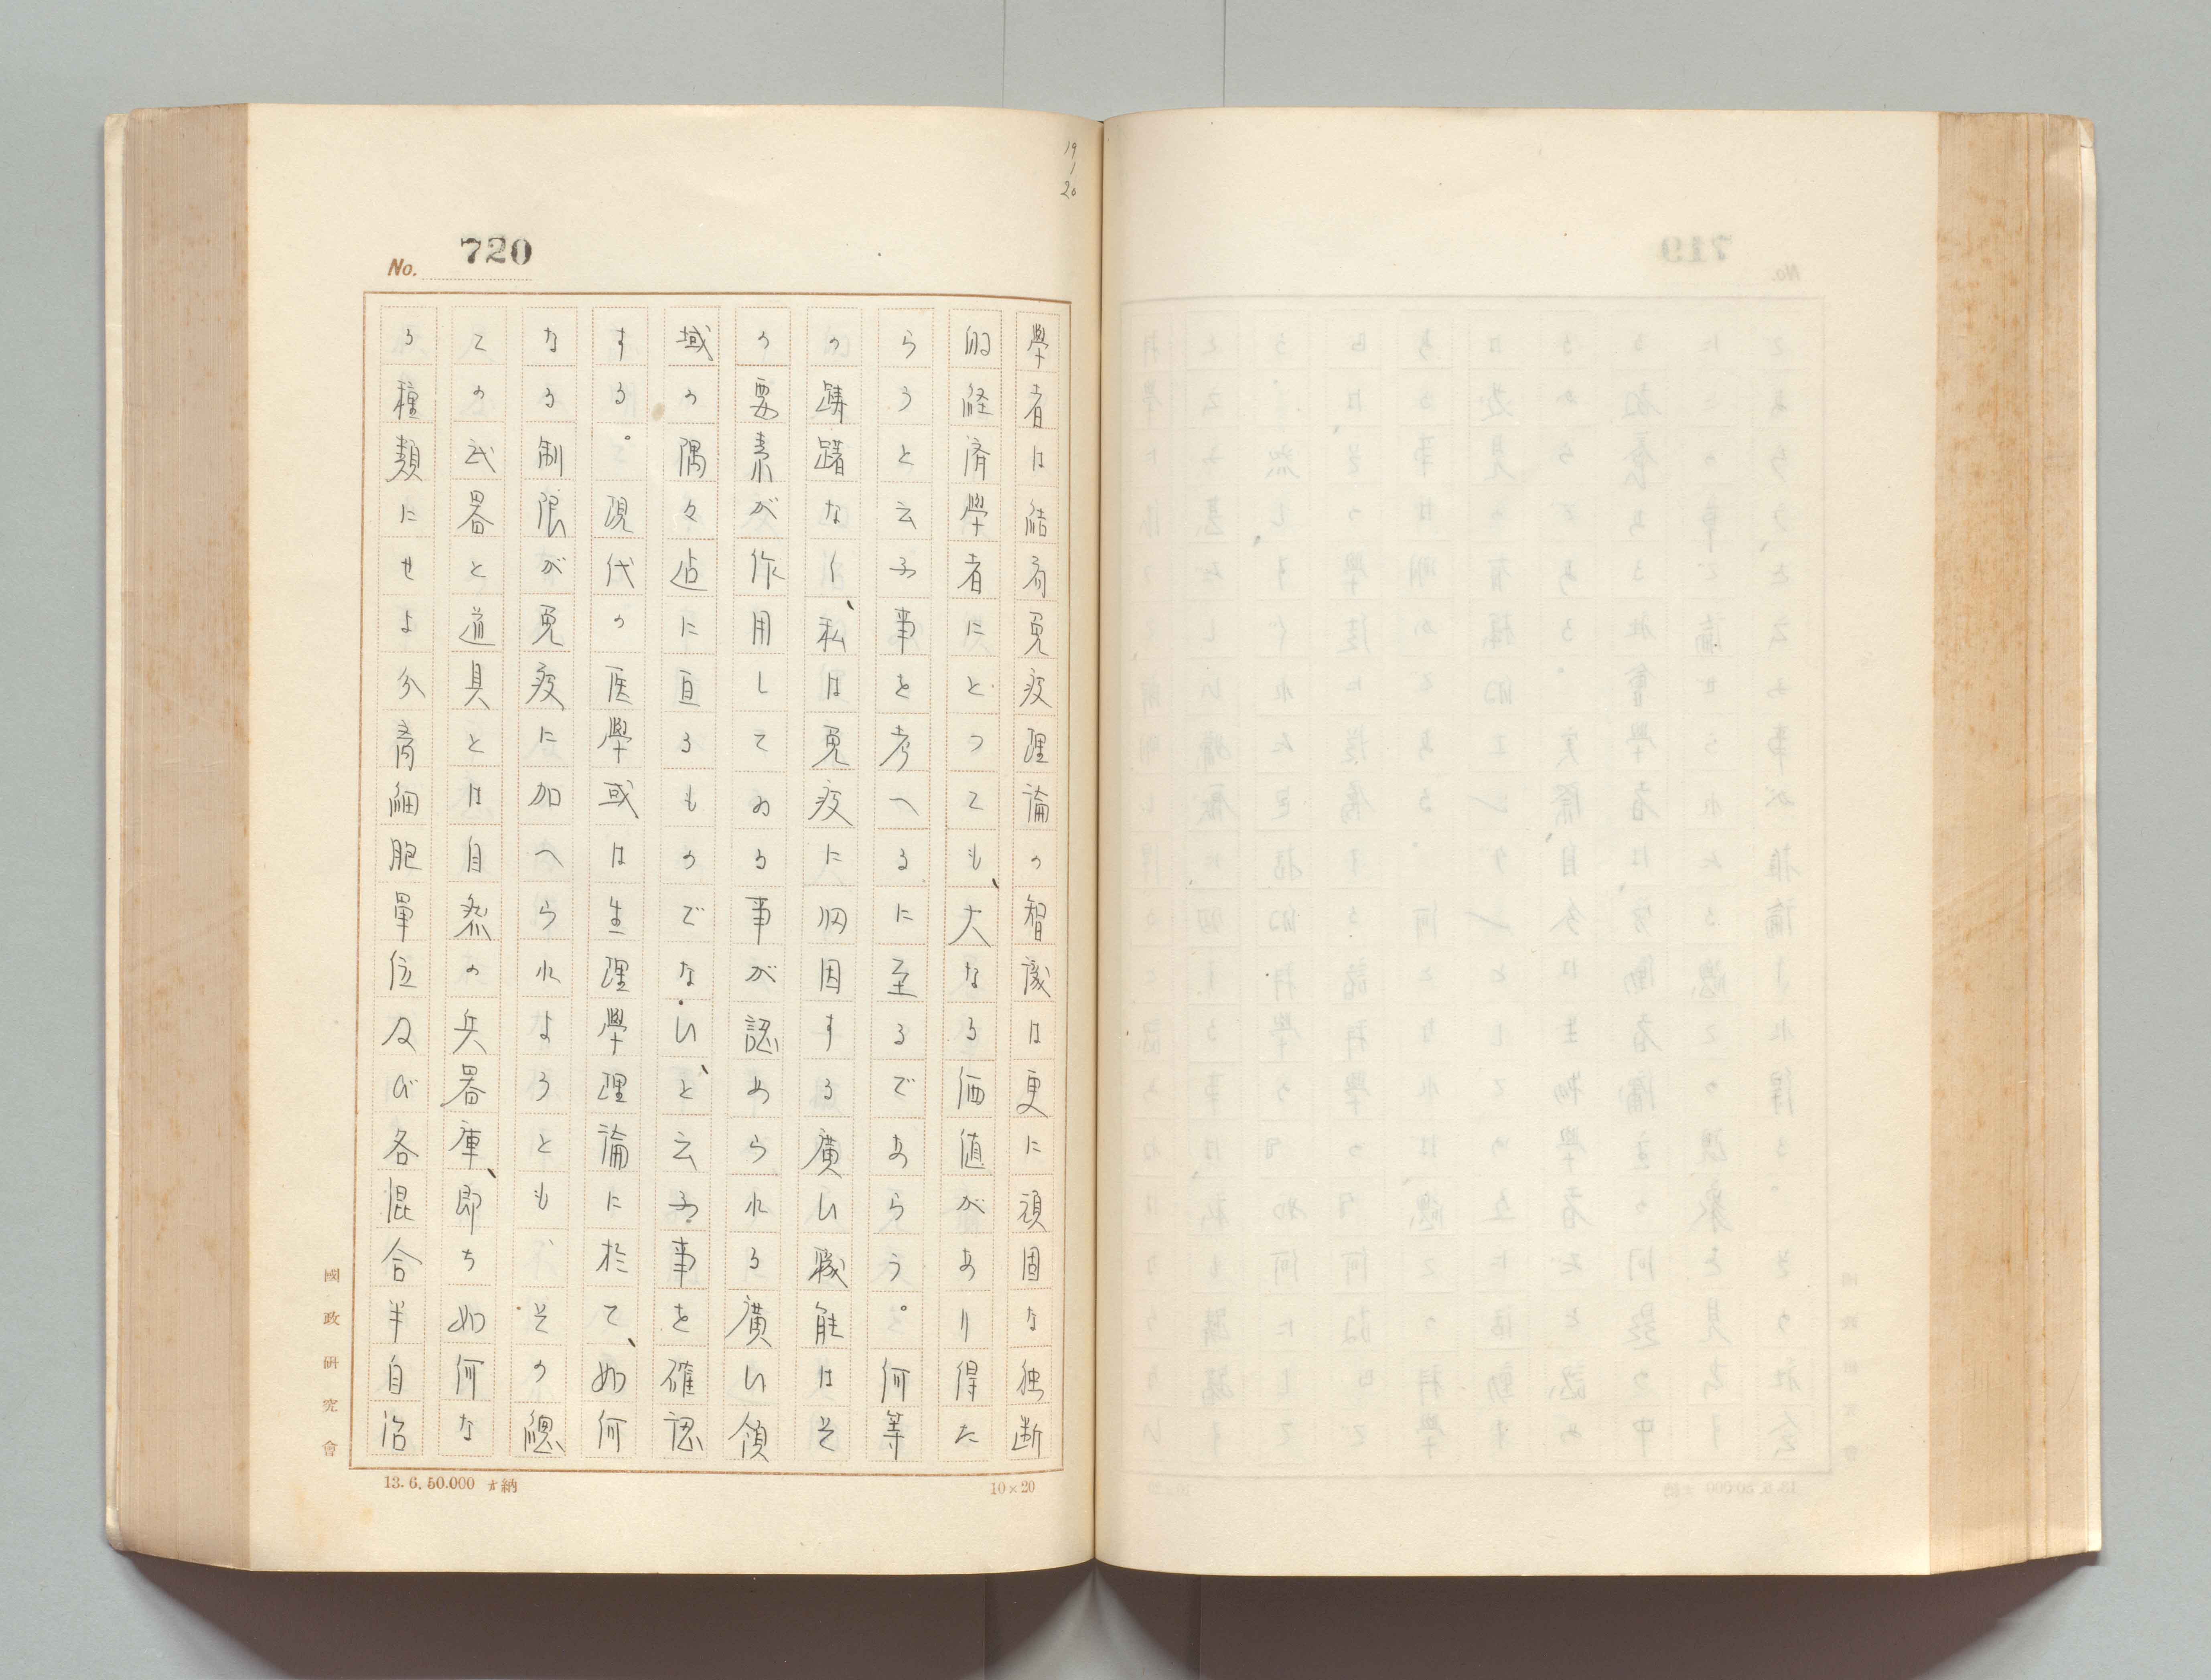 19
1
20
No. 720
學者は結局免疫理論の智識は更に頑固な独断
的経済學者にとつても、大なる価値があり得た
らうと云ふ事を考へるに至るであらう。何等
の躊躇なく、私は免疫に因する廣い職能はそ
の要素が作用してゐる事が認められる廣い領
域の隅々迠に亘るものでない、と云ふ事を確認
する。現代の医學或は生理學理論に於て、如何
なる制限が免疫に加へられようとも、その總
ての武器と道具とは自然の兵器庫、即ち如何な
る種類にせよ分裔細胞單位及び各混合半自治
國政研究會
13.6.50.000 納
10×20